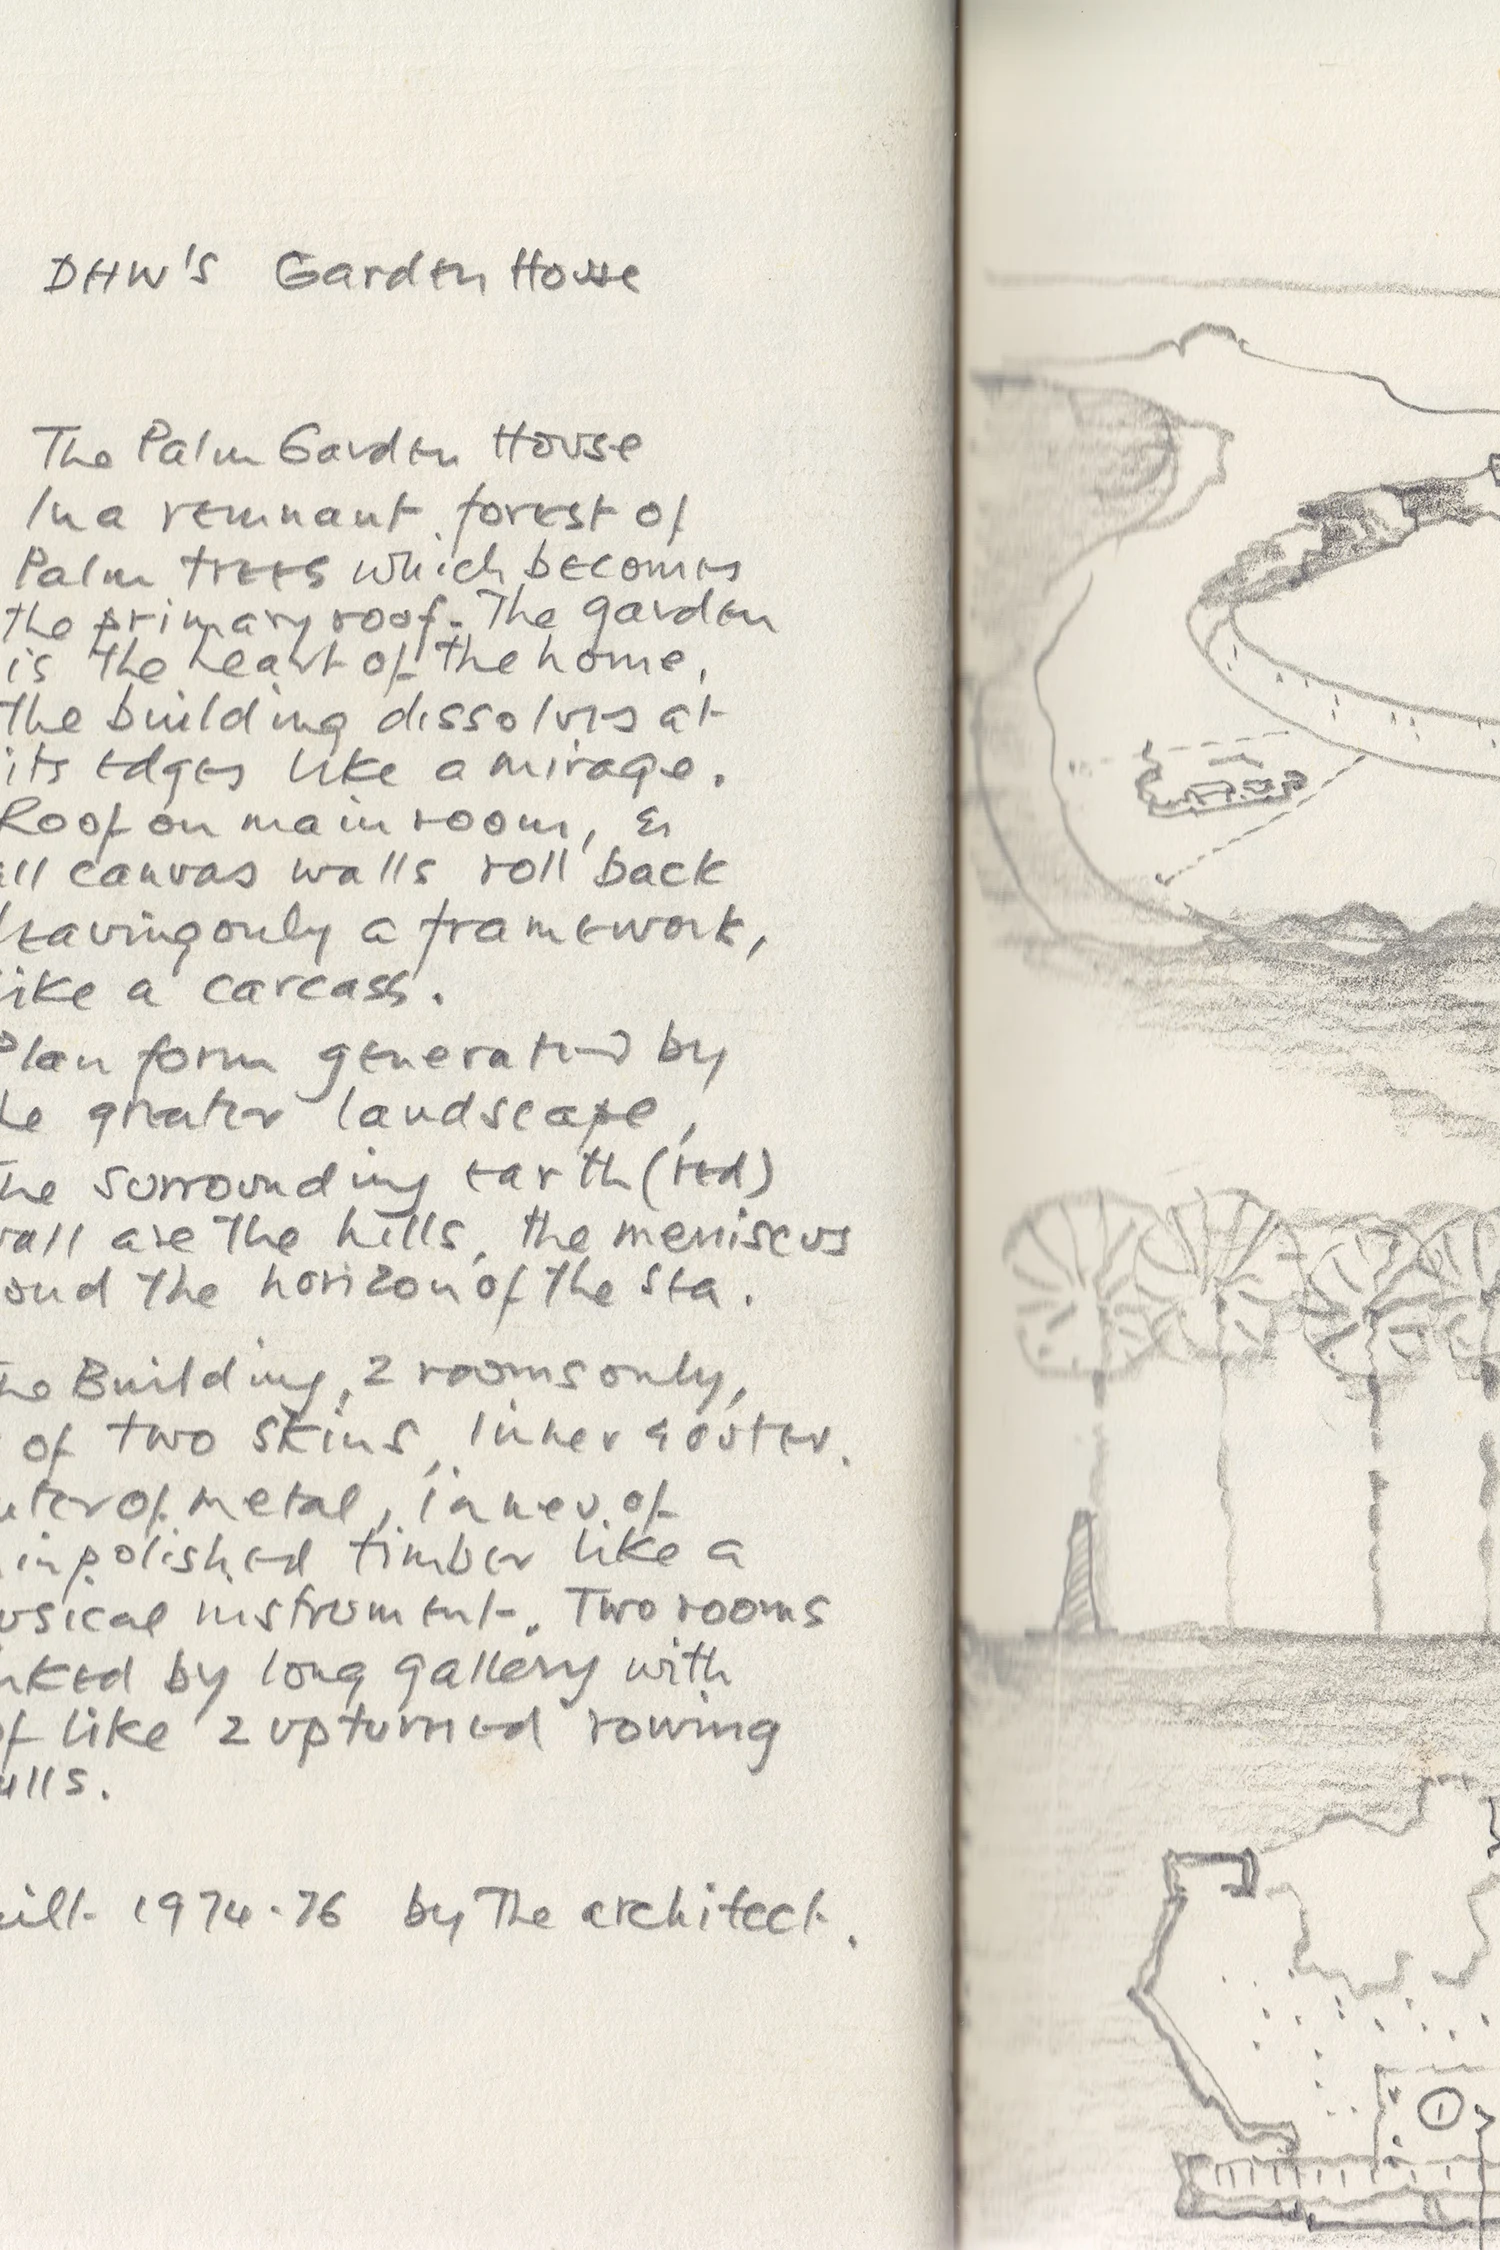 DHW's Garden House
The Palm Garden House
In a remnant forest of
Palm trees which becomes
the primary roof. The garden
is the heart of the home,
the building dissolves at
its edges like a mirage.
Roof on main room, &
all canvas walls roll back
leaving only a framework,
like a carcass.
Plan form generated by
the greater landscape,
The surrounding earth (red)
wall are the hills, the meniscus
pond the horizon of the sea.
The Building, 2 rooms only,
of two skins, inner & outer.
outer of metal, inner of
in polished timber like a
musical instrument. Two rooms
linked by long gallery with
of like 2 upturned rowing
ulls.
Built 1974-76 by The architect.
1